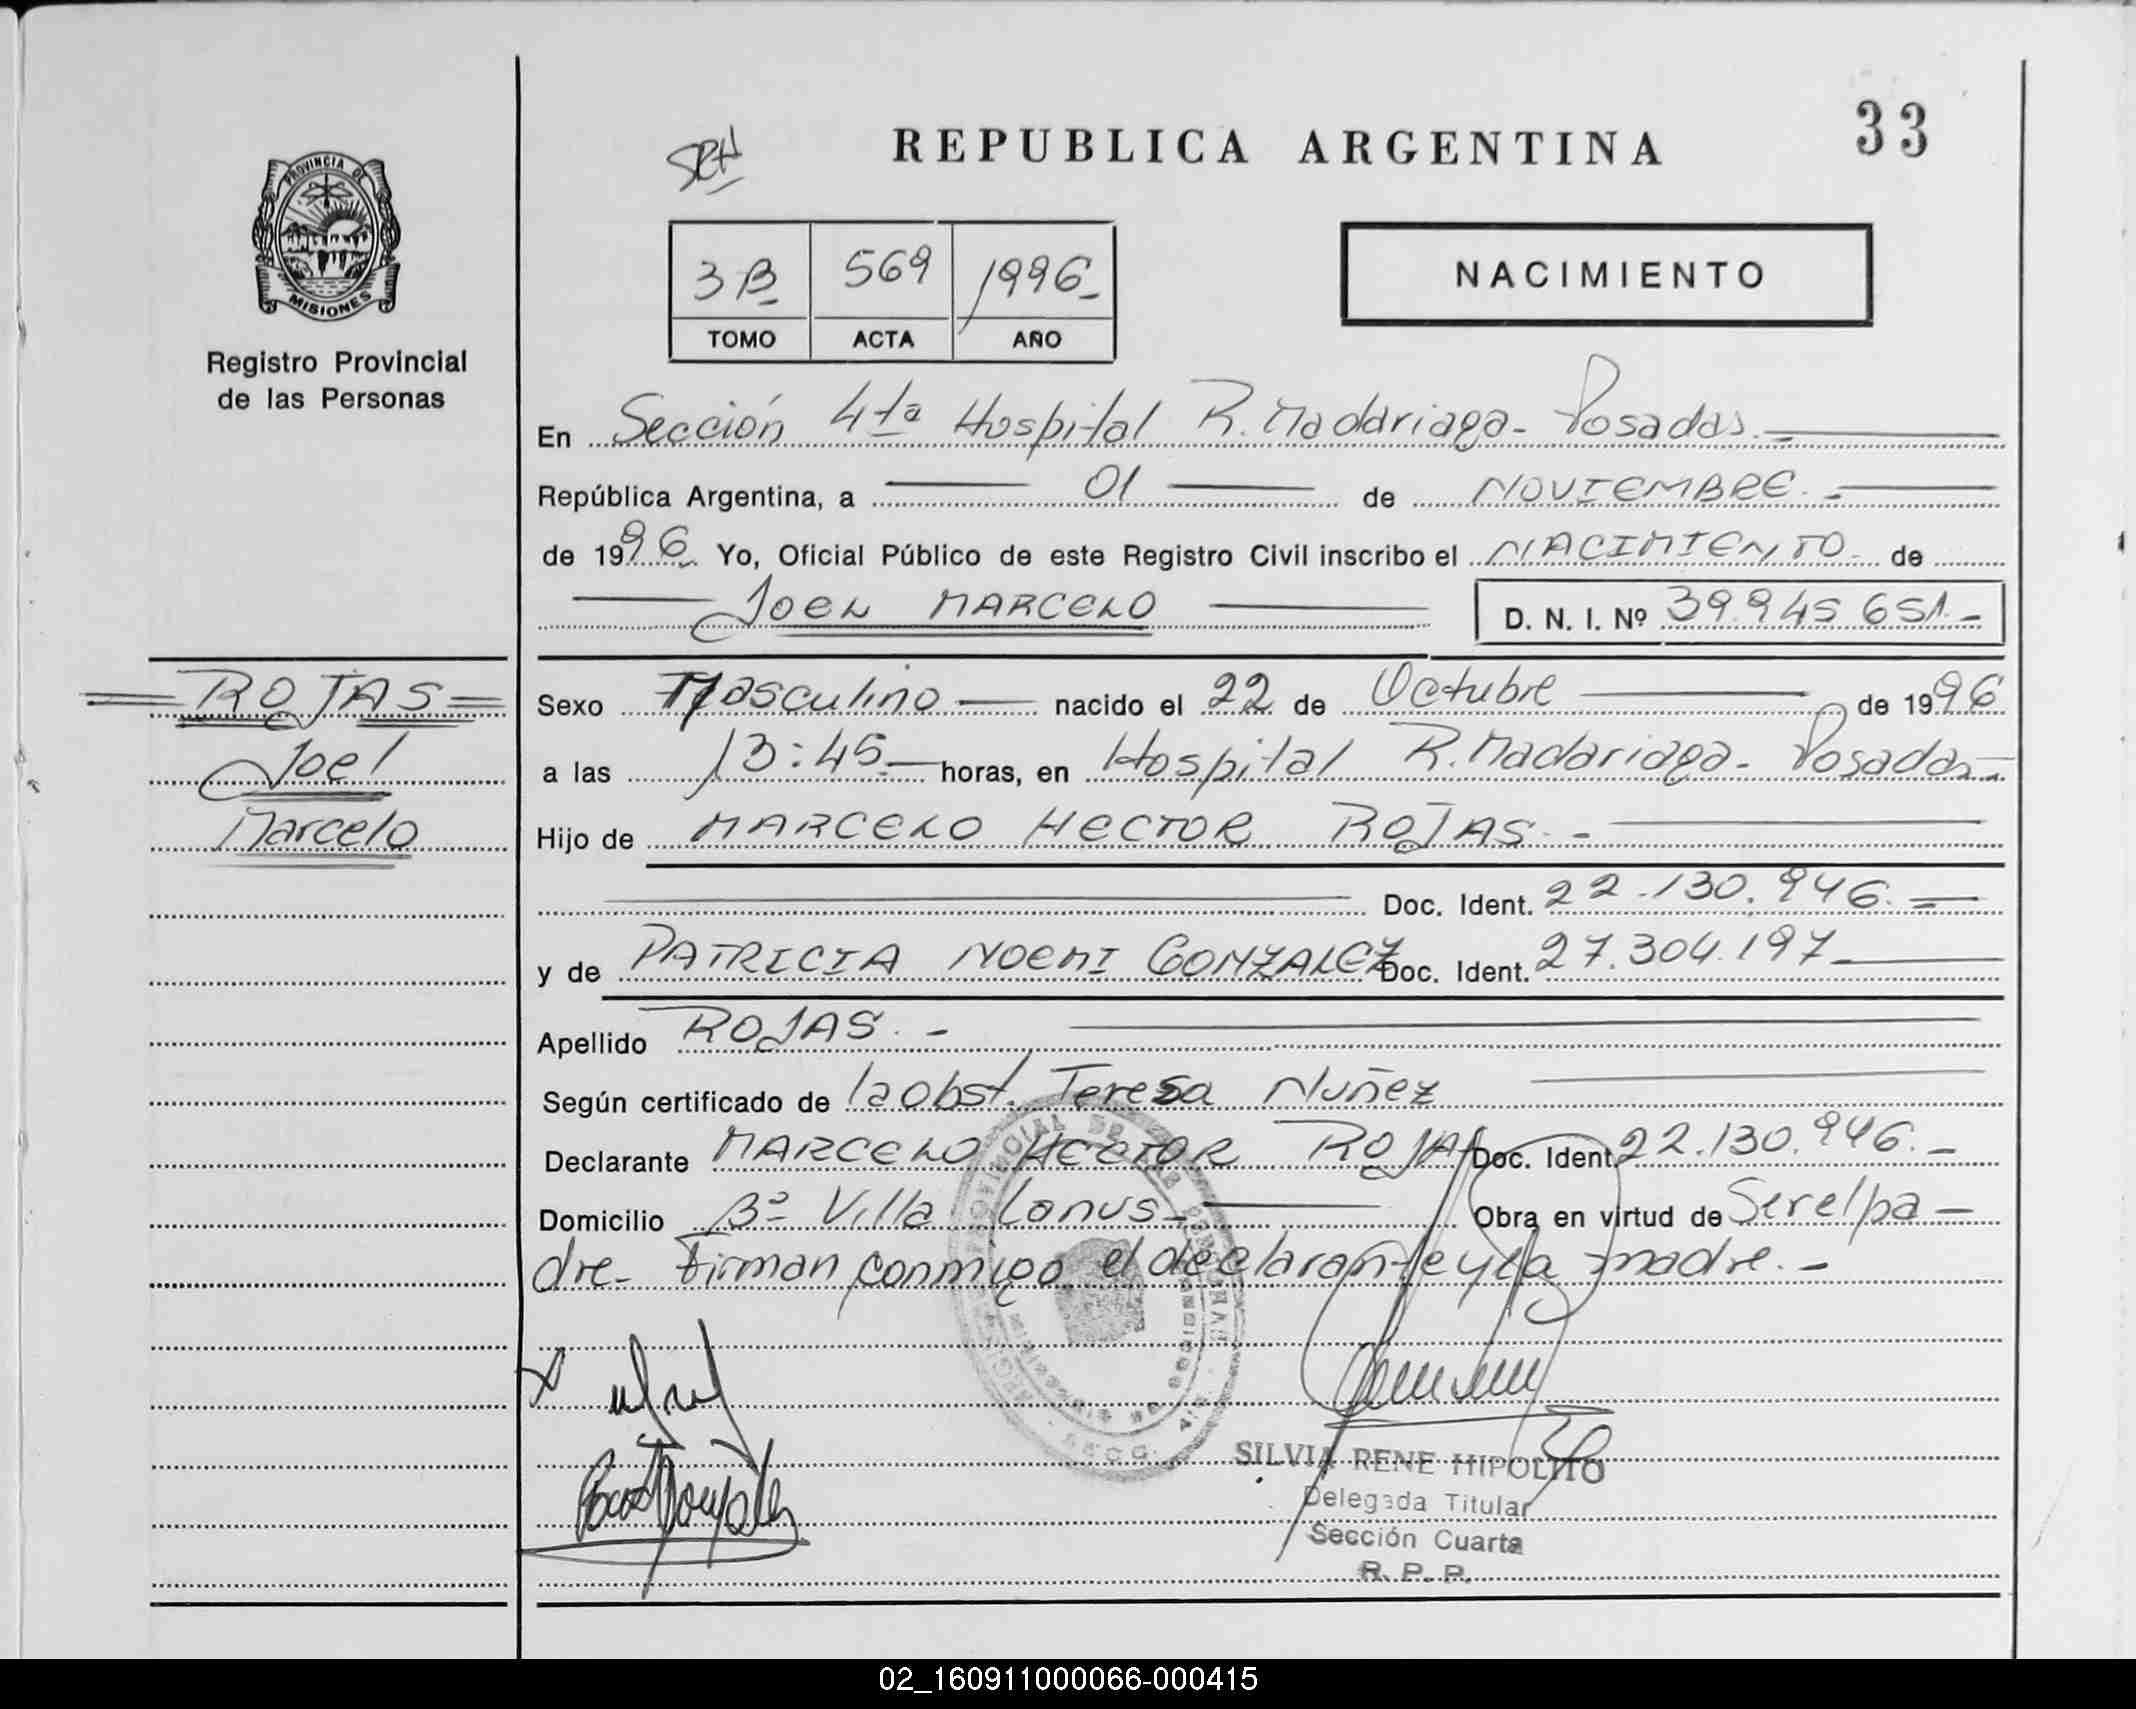 REPUBLICA ARGENTINA
33
PROVINCIA DE
MISIONES
Registro Provincial
de las Personas
3B 569 1996
TOMO ACTA AÑO
NACIMIENTO
En Sección 4ta Hospital R. Madariaga - Posadas.
República Argentina, a 01 de NOVIEMBRE.
de 1996. Yo, Oficial Público de este Registro Civil inscribo el NACIMIENTO de
JOEL MARCELO D. N. I. Nº 39.945.651.
ROJAS
Joel
Marcelo
Sexo Masculino nacido el 22 de Octubre de 1996
a las 13:45 horas, en Hospital R. Madariaga - Posadas
Hijo de MARCELO HECTOR ROJAS.
Doc. Ident. 22.130.946.
y de PATRICIA NOEMI GONZALEZ Doc. Ident. 27.304.197
Apellido ROJAS.
Según certificado de la obst. Teresa Nuñez
Declarante MARCELO HECTOR ROJAS Doc. Ident. 22.130.946.
Domicilio Bº Villa Lanus Obra en virtud de Ser el pa
dre. Firman conmigo el declarante y la madre.
SILVIA RENE HIPOLITO
Delegada Titular
Sección Cuarta
R. P. P.
02_160911000066-000415